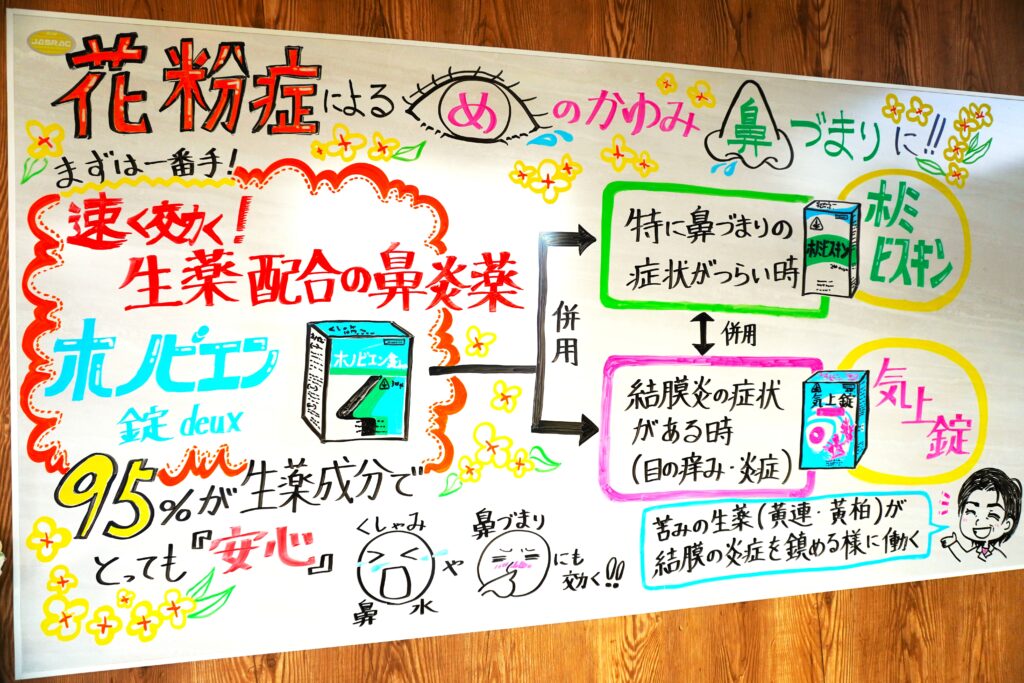 JASRAC
花粉症によるめのかゆみ鼻づまりに!!
まずは一番手!
速く効く!
生薬配合の鼻炎薬
ホノピエン
錠 deux
ホノピエン錠
95%が生薬成分で
とっても『安心』
くしゃみ
鼻水
や
鼻づまり
にも
効く!!
併用
特に鼻づまりの
症状がつらい時
ホノミビスキン
ホノミ
ビスキン
併用
結膜炎の症状
がある時
(目の痒み・炎症)
気上錠
気上錠
苦みの生薬(黄連・黄柏)が
結膜の炎症を鎮める様に働く